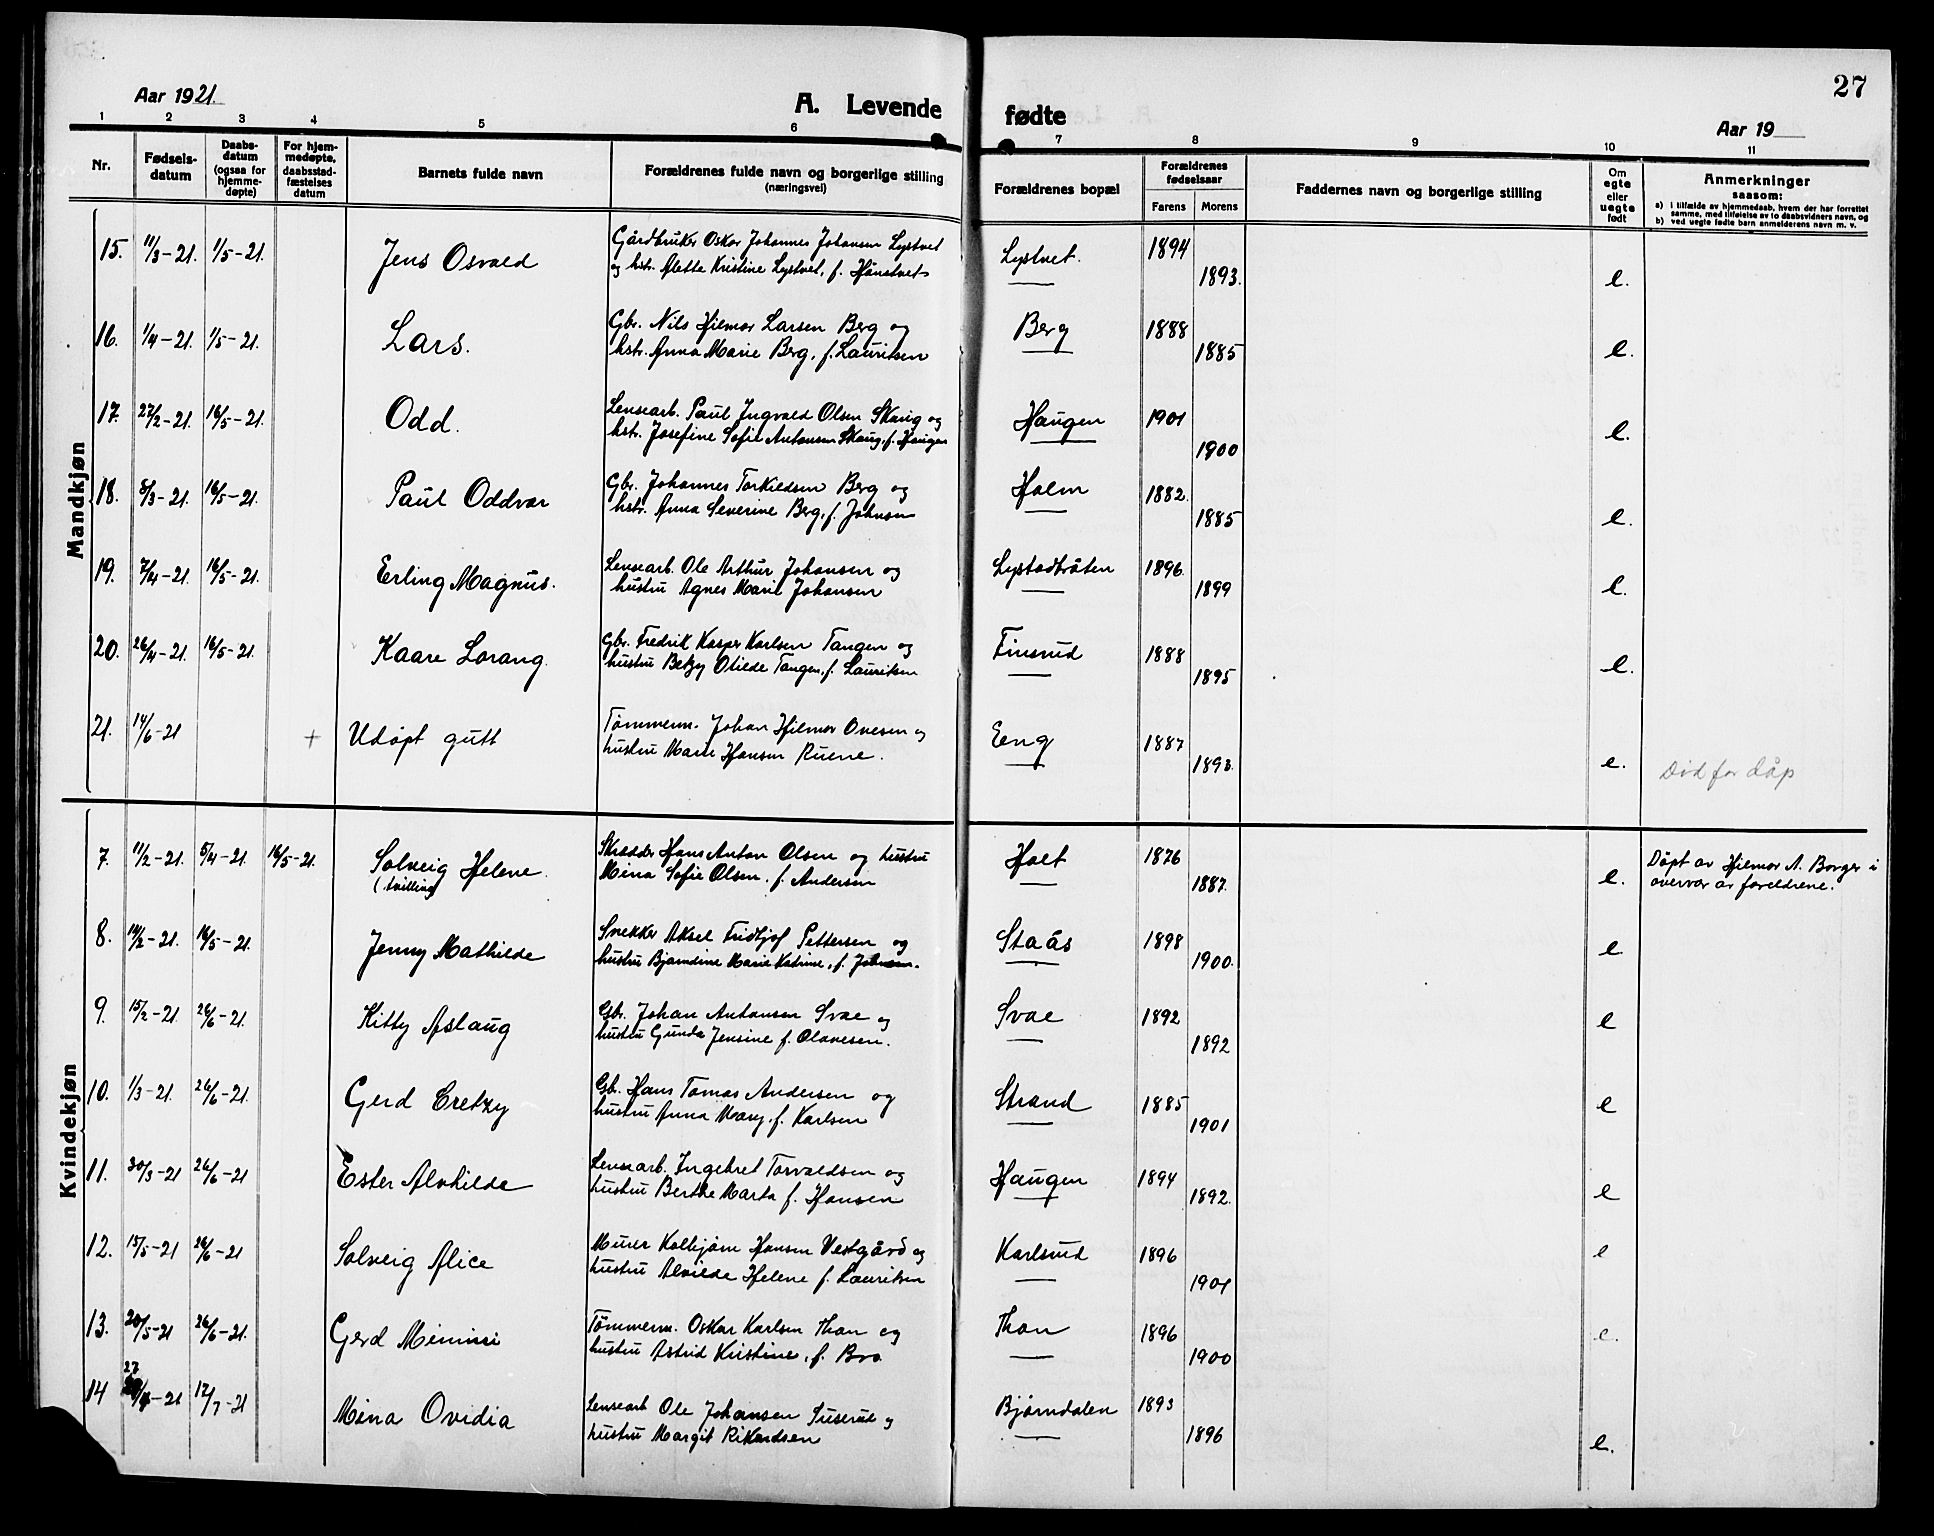 27
Aar 1921.
A. Levende fødte
Aar 19
1 2 3 4 5 6 7 8 9 10 11
Nr.
Fødsels-
datum
Daabs-
datum
(ogsaa for
hjemme-
døpte)
For hjem-
medøpte,
daabsstad-
fæstelses
datum
Barnets fulde navn
Forældrenes fulde navn og borgerlige stilling
(næringsvei)
Forældrenes bopæl
Forældrenes
fødselsaar
Farens Morens
Faddernes navn og borgerlige stilling
Om
egte
eller
uegte
født
Anmerkninger
saasom:
a) i tilfælde av hjemmedaab, hvem der har forrettet
samme, med tilføielse av to daabsvidners navn, og
b) ved uegte fødte barn anmelderens navn m. v.
Mandkjøn
15. 11/3-21 1/5-21. Jens Osvald
Gårdbruker Oskar Johannes Johansen Lystvet
og hstr. Alette Kristine Lystvet, f. Hånetvet
Lystvet. 1894 1893. e.
16. 1/4-21. 1/5-21. Lars.
Gbr. Nils Hilmar Larsen Berg og
hstr. Anna Marie Berg, f. Lauritsen
Berg 1888 1885 e.
17. 27/2-21. 16/5-21. Odd.
Lensearb. Paul Ingvald Olsen Skaug og
hstr. Josefine Sofie Antonsen Skaug, f. Haugen
Haugen 1901 1900 e.
18. 8/3-21. 16/5-21. Paul Oddvar
Gbr. Johannes Torkildsen Berg og
hstr. Anna Severine Berg, f. Johnsen
Holm 1882. 1885 e.
19. 7/4-21. 16/5-21. Erling Magnus.
Lensearb. Ole Arthur Johansen og
hustru Agnes Marie Johansen
Lystadbråten 1896. 1899 e.
20. 26/4-21. 16/5-21. Kaare Lorang.
Gbr. Fredrik Kasper Karlsen Tangen og
hustru Betzy Otilde Tangen, f. Lauritsen
Finsrud 1888 1895 e.
21. 14/6-21 + Udøpt gutt
Tømmerm. Johan Hilmar Ovesen og
hustru Marie Hansen Ruene.
Eng 1887 1893. e. Død før dåp
Kvindekjøn
7. 11/2-21. 5/4-21. 16/5-21. Solveig Helene.
(tvilling)
Skrædder Hans Anton Olsen og hustru
Mina Sofie Olsen, f. Andersen
Holt 1876 1887. e. Døpt av Hilmar A. Borger i
overvær av foreldrene.
8. 14/2-21. 16/5-21. Jenny Mathilde
Snekker Aksel Fridtjof Pettersen og
hustru Bjarndine Marie Katrine, f. Johnsen.
Staås 1898 1900. e
9. 15/2-21. 26/6-21. Kitty Aslaug
Gbr. Johan Antonsen Svae og
hustru Gunda Jensine f. Olavesen.
Svae 1892 1892 e
10. 1/3-21. 26/6-21. Gerd Cretzy
Gbr. Hans Tomas Andersen og
hustru Anna Mary, f. Karlsen
Strand 1885 1901 e
11. 30/3-21 26/6-21. Ester Alvhilde
Lensearb. Ingebret Torvaldsen og
hustru Berthe Marta f. Hansen
Haugen 1894 1892. e
12. 15/5-21 26/6-21 Solveig Alice
Murer Kolbjørn Hansen Vestgård og
hustru Alvilde Helene f. Lauritsen
Karlsrud 1896 1901 e
13. 20/5-21 26/6-21. Gerd Mimmi
Tømmerm. Oskar Karlsen Thon og
hustru Astrid Kristine, f. Bro
Thon 1896 1900 e.
14 27/4-21 17/7-21 Mina Ovidia
Lensearb Ole Johansen Suserud og
hustru Margit Rikardsen
Bjørndalen 1893 1896 e.